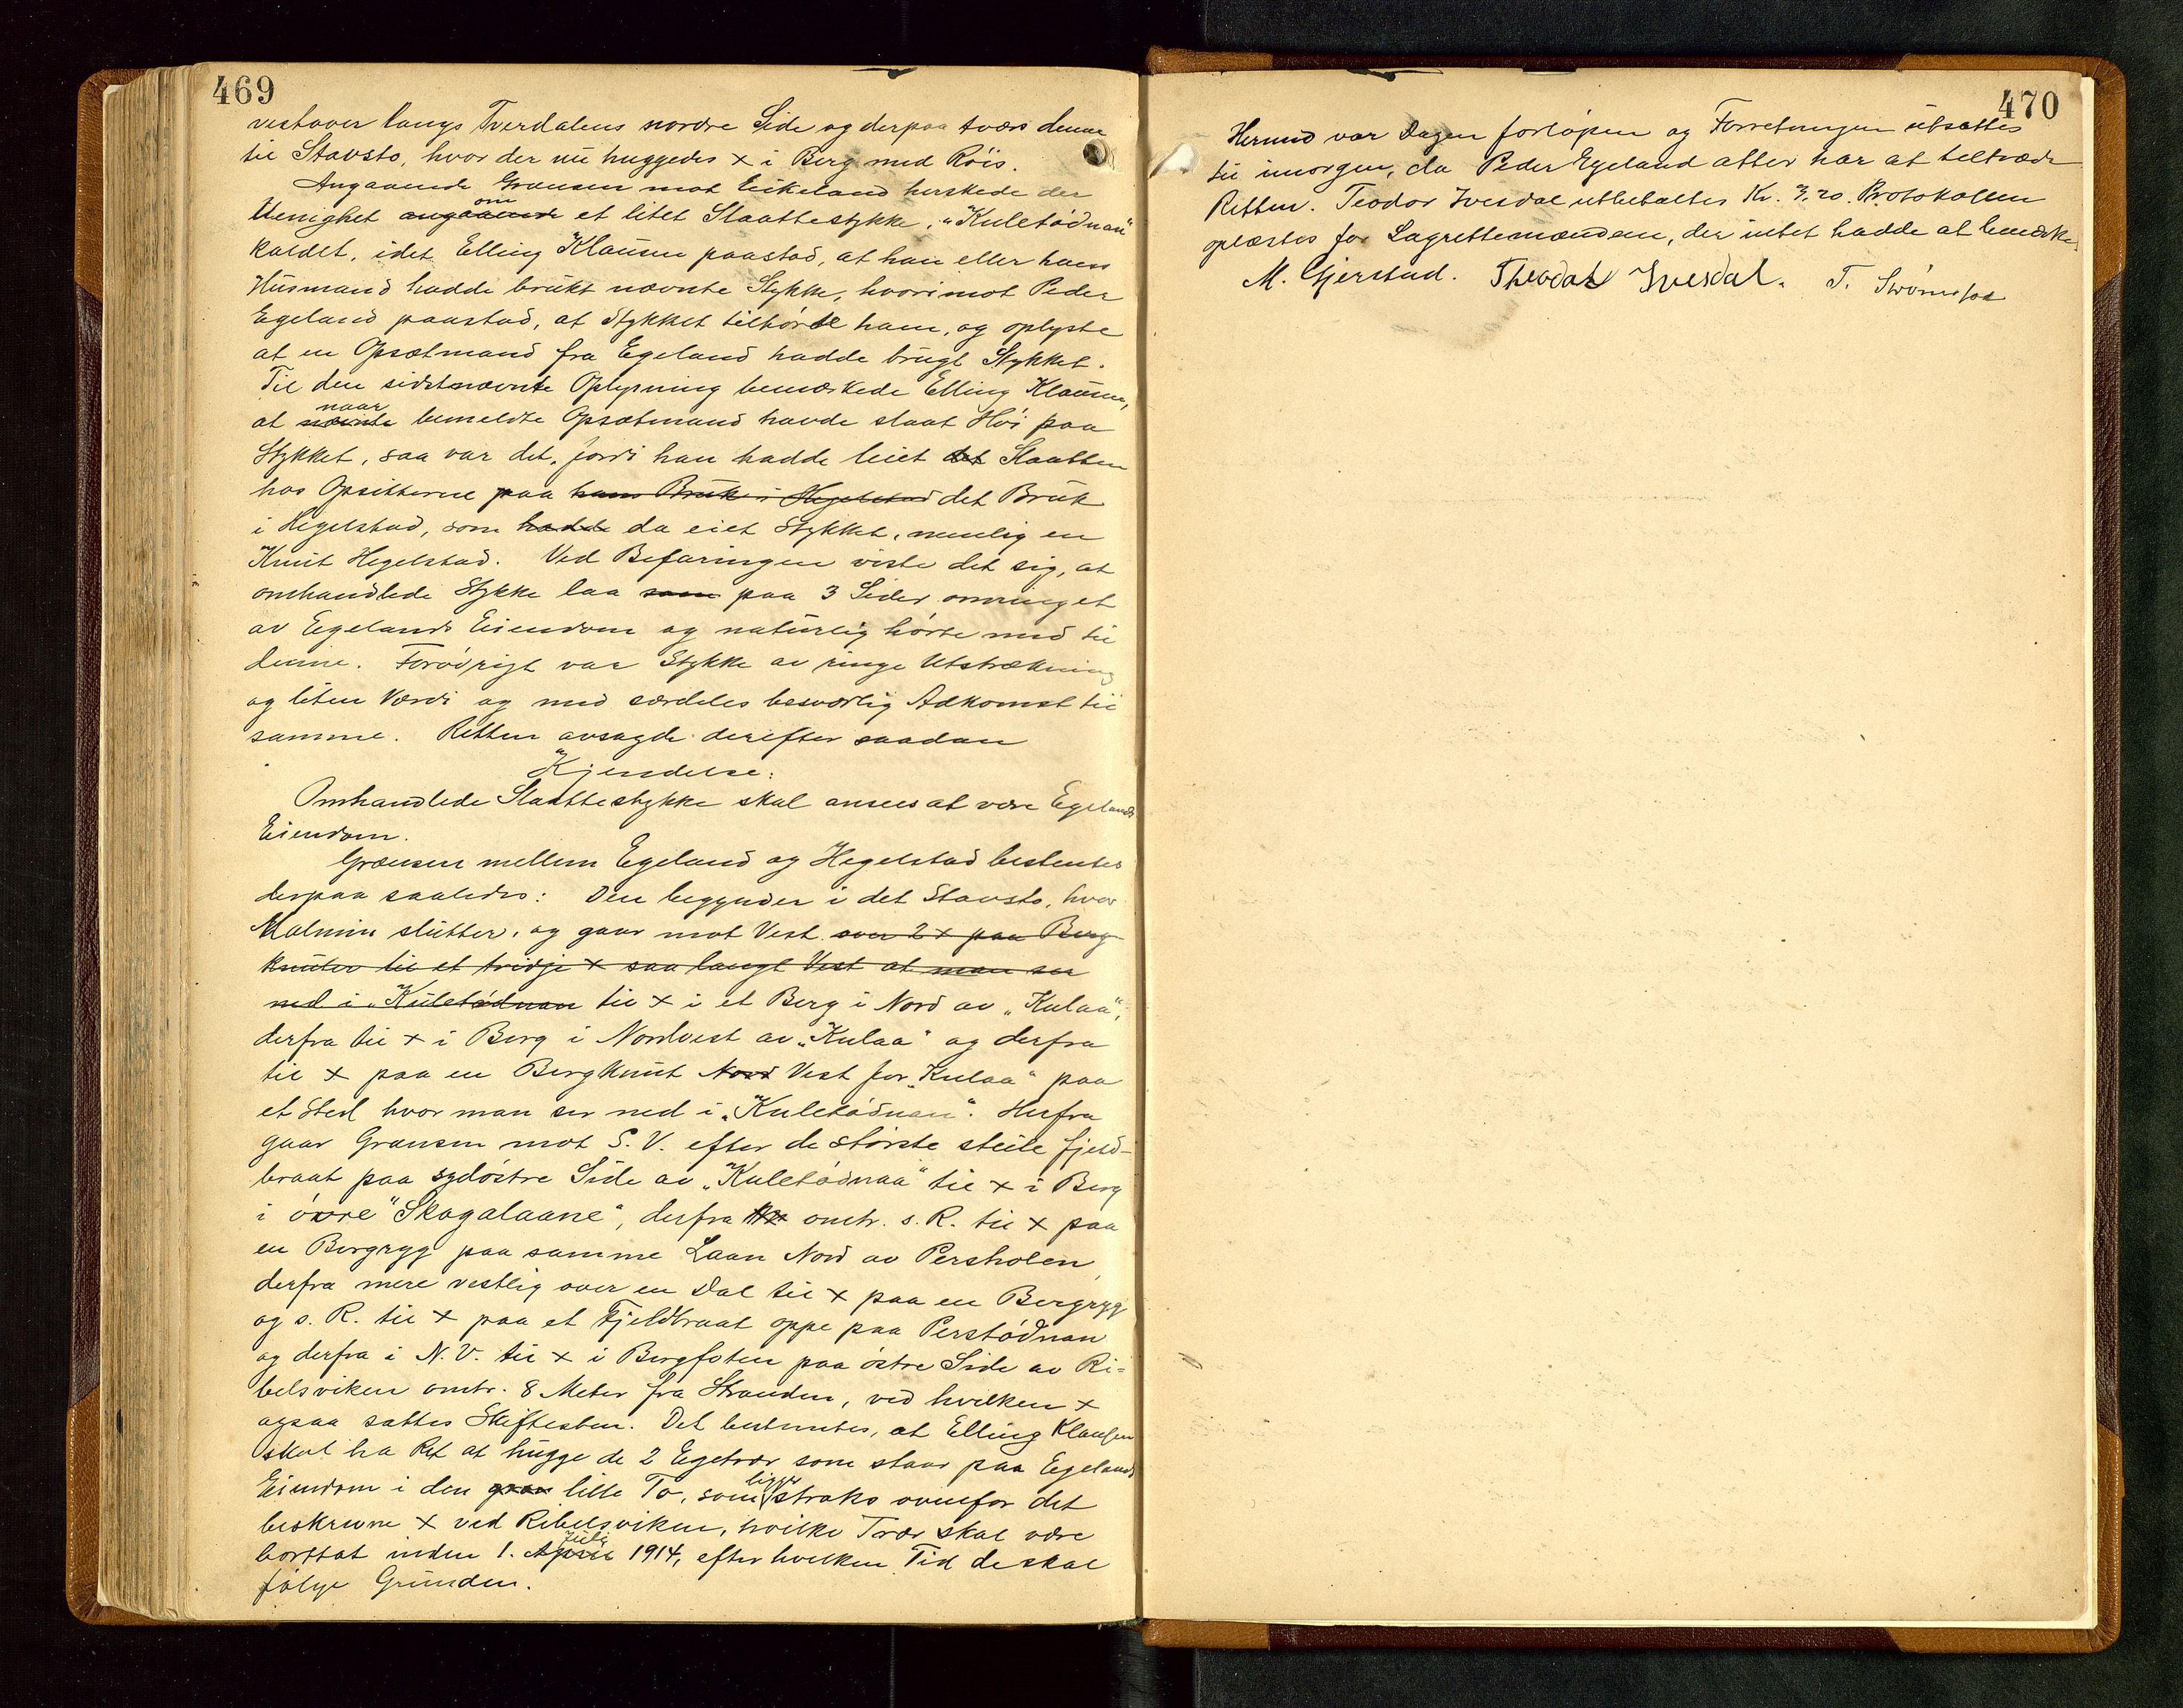 469
vestover langs Tverdalens nordre Side og derpaa tvers denne
til Stavsto, hvor der nu huggedes x i Berg med Röis.
Angaaende Grænsen mot Eikeland herskede der
Uenighet angaaende om et litet Slaattestykke, "Kuletödnan"
kaldet, idet Elling Klausen paastod, at han eller hans
Husmand hadde brukt nævnte Stykke, hvorimot Peder
Egeland paastod, at Stykket tilhörte ham, og oplyste
at en Opsætmand fra Egeland hadde brugt Stykket.
Til den sidstnævnte Oplysning bemerkede Elling Klausen,
at nævnte naar bemeldte Opsætmand havde slaat Höi paa
Stykket, saa var det, fordi han hadde leiet det Slaatten
hos Opsitterne paa hans Bruk i Hegelstad det Bruk
i Hegelstad, som hadde da eiet Stykket, nemlig en
Knut Hegelstad. Ved Befaringen viste det sig, at
omhandlede Stykke laa som paa 3 Sider omringet
av Egelands Eiendom og naturlig hörte med til
denne. Forövrigt var Stykke av ringe Utstrækning
og liten Værdi og med særdeles besværlig Adkomst til
samme. Retten avsagde derefter saadan
Kjendelse:
Omhandlede Slaattestykke skal ansees at være Egelands
Eiendom.
Grænsen mellem Egeland og Hegelstad bestemtes
derpaa saaledes: Den begynder i det Stavsto, hvor
Malmin slutter, og gaar mot Vest over 2 x paa Berg-
knuter til et tridje x saa langt Vest at man ser
ned i "Kuletödnan til x i et Berg i Nord av "Kulaa",
derfra til x i Berg i Nordvest av "Kulaa" og derfra
til x paa en Bergknut Nord Vest for "Kulaa" paa
et Sted hvor man ser ned i "Kuletödnan". Herfra
gaar Grænsen mot S. V. efter de störste steile Fjeld-
braat paa sydöstre Side av "Kuletödnaa" til x i Berg
i övre "Skagalaane", derfra omtr. s. R. til x paa
en Bergryg paa samme Laan Nord av Persholen,
derfra mere vestlig over en Dal til x paa en Bergryg
og s. R. til x paa et Fjeldbraat oppe paa Perstödnan
og derfra i N. V. til x i Bergfoten paa östre Side av Ri-
belsviken omtr. 8 Meter fra Stranden, ved hvilken x
ogsaa sattes Skiftesten. Det bestemtes, at Elling Klausen
skal ha Ret at hugge de 2 Egetrær som staar paa Egelands
Eiendom i den lille To, som ligger straks ovenfor det
beskrevne x ved Ribelsviken, hvilke Trær skal være
borttat inden 1. April Juli 1914, efter hvilken Tid de skal
fölge Grunden.
470
Hermed var Dagen forlöpen og Forretningen utsattes
til imorgen, da Peder Egeland atter har at tiltræde
Retten. Teodor Ivesdal utbetaltes Kr. 3,20. Protokollen
oplæstes for Lagrettemændene, der intet hadde at bemerke.
M. Gjerstad. Theodor Ivesdal. T.